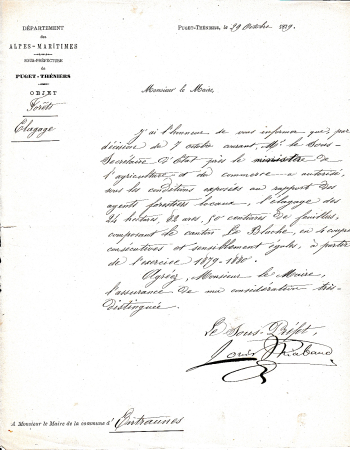 DÉPARTEMENT
des
ALPES-MARITIMES
SOUS-PRÉFECTURE
de
PUGET-THÉNIERS
OBJET
Forêts
Elagage
PUGET-THÉNIERS, le 29 Octobre 1879.
Monsieur le Maire,
J'ai l'honneur de vous informer que, par
décision du 7 octobre courant, Mr. le Sous-
Secrétaire d'Etat près le ministère de
l'agriculture et du commerce a autorisé,
sous les conditions exposées au rapport des
agents forestiers locaux, l'élagage des
24 hectares, 82 ares, 50 centiares de feuillus,
composant le canton La Bluche, en 4 coupes
consécutives et sensiblement égales, à partir
de l'exercice 1879-1880.
Agréez, Monsieur le Maire,
l'assurance de ma considération très-
distinguée.
Le Sous-Préfet,
Louis
A Monsieur le Maire de la commune d' Entraunes